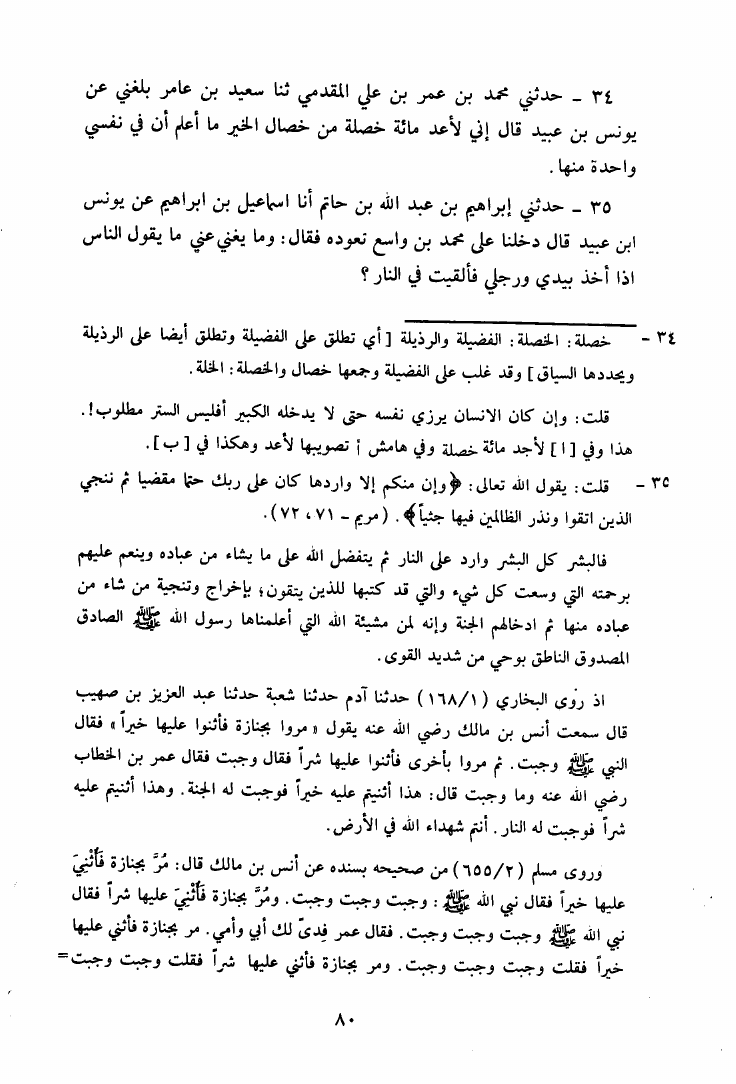 ٣٤ - حدثني محمد بن عمر بن علي المقدمي ثنا سعيد بن عامر بلغني عن
يونس بن عبيد قال إني لأعد مائة خصلة من خصال الخير ما أعلم أن في نفسي
واحدة منها.
٣٥ - حدثني إبراهيم بن عبد الله بن حاتم أنا اسماعيل بن ابراهيم عن يونس
ابن عبيد قال دخلنا على محمد بن واسع نعوده فقال: وما يغني عني ما يقول الناس
اذا أخذ بيدي ورجلي فألقيت في النار؟
٣٤ - خصلة: الخصلة: الفضيلة والرذيلة [أي تطلق على الفضيلة وتطلق أيضا على الرذيلة
ويحددها السياق] وقد غلب على الفضيلة وجمعها خصال والخصلة: الخلة.
قلت: وإن كان الانسان يرزي نفسه حتى لا يدخله الكبير أفليس الستر مطلوب!.
هذا وفي [أ] لأجد مائة خصلة وفي هامش أ تصويبها لأعد وهكذا في [ب].
٣٥ - قلت: يقول الله تعالى: ﴿وإن منكم إلا واردها كان على ربك حتما مقضيا ثم ننجي
الذين اتقوا ونذر الظالمين فيها جثياً﴾. (مريم - ٧١، ٧٢).
فالبشر كل البشر وارد على النار ثم يتفضل الله على ما يشاء من عباده وينعم عليهم
برحمته التي وسعت كل شيء والتي قد كتبها للذين يتقون؛ بإخراج وتنجية من شاء من
عباده منها ثم ادخالهم الجنة وإنه لمن مشيئة الله التي أعلمناها رسول الله ﷺ الصادق
المصدوق الناطق بوحي من شديد القوى.
اذ روى البخاري (١٦٨/١) حدثنا آدم حدثنا شعبة حدثنا عبد العزيز بن صهيب
قال سمعت أنس بن مالك رضي الله عنه يقول «مروا بجنازة فأثنوا عليها خيراً» فقال
النبي ﷺ وجبت. ثم مروا بأخرى فأثنوا عليها شراً فقال وجبت فقال عمر بن الخطاب
رضي الله عنه وما وجبت قال: هذا أثنيتم عليه خيراً فوجبت له الجنة. وهذا أثنيتم عليه
شراً فوجبت له النار. أنتم شهداء الله في الأرض.
وروى مسلم (٦٥٥/٢) من صحيحه بسنده عن أنس بن مالك قال: مُرَّ بجنازة فَأُثْنِيَ
عليها خيراً فقال نبي الله ﷺ: وجبت وجبت وجبت. ومُرَّ بجنازة فَأُثْنِيَ عليها شراً فقال
نبي الله ﷺ وجبت وجبت وجبت. فقال عمر فِدىً لك أبي وأمي. مر بجنازة فأثني عليها
خيراً فقلت وجبت وجبت وجبت. ومر بجنازة فأثني عليها شراً فقلت وجبت وجبت=
٨٠